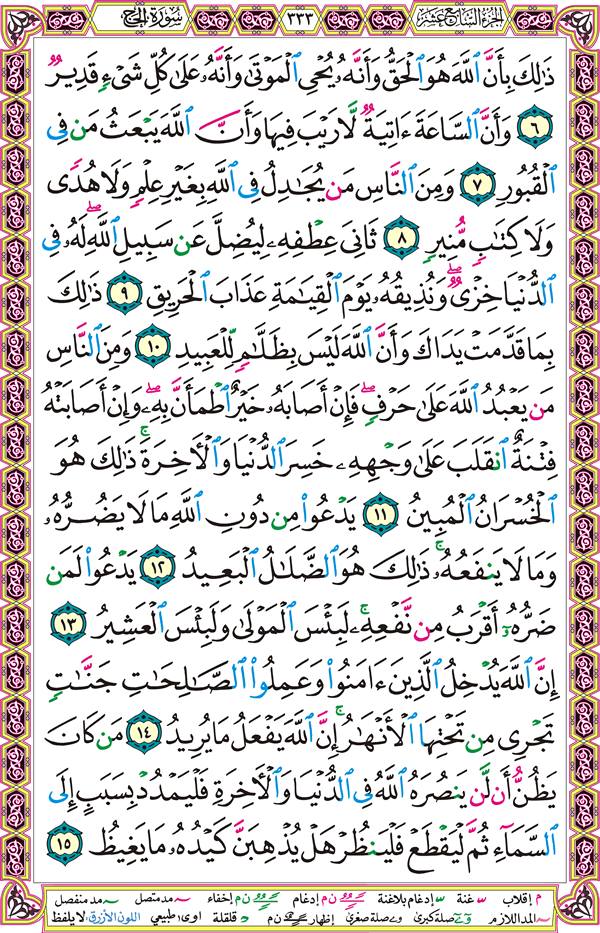 الجزء السابع عشر
٣٣٣
سورة الحج
ذَٰلِكَ بِأَنَّ ٱللَّهَ هُوَ ٱلْحَقُّ وَأَنَّهُۥ يُحْىِ ٱلْمَوْتَىٰ وَأَنَّهُۥ عَلَىٰ كُلِّ شَىْءٍ قَدِيرٌ
٦ وَأَنَّ ٱلسَّاعَةَ ءَاتِيَةٌ لَّا رَيْبَ فِيهَا وَأَنَّ ٱللَّهَ يَبْعَثُ مَن فِى
ٱلْقُبُورِ ٧ وَمِنَ ٱلنَّاسِ مَن يُجَٰدِلُ فِى ٱللَّهِ بِغَيْرِ عِلْمٍ وَلَا هُدًى
وَلَا كِتَٰبٍ مُّنِيرٍ ٨ ثَانِىَ عِطْفِهِۦ لِيُضِلَّ عَن سَبِيلِ ٱللَّهِ ۖ لَهُۥ فِى
ٱلدُّنْيَا خِزْىٌ ۖ وَنُذِيقُهُۥ يَوْمَ ٱلْقِيَٰمَةِ عَذَابَ ٱلْحَرِيقِ ٩ ذَٰلِكَ
بِمَا قَدَّمَتْ يَدَاكَ وَأَنَّ ٱللَّهَ لَيْسَ بِظَلَّٰمٍ لِّلْعَبِيدِ ١٠ وَمِنَ ٱلنَّاسِ
مَن يَعْبُدُ ٱللَّهَ عَلَىٰ حَرْفٍ ۖ فَإِنْ أَصَابَهُۥ خَيْرٌ ٱطْمَأَنَّ بِهِۦ ۖ وَإِنْ أَصَابَتْهُ
فِتْنَةٌ ٱنقَلَبَ عَلَىٰ وَجْهِهِۦ خَسِرَ ٱلدُّنْيَا وَٱلْأَخِرَةَ ۚ ذَٰلِكَ هُوَ
ٱلْخُسْرَانُ ٱلْمُبِينُ ١١ يَدْعُوا۟ مِن دُونِ ٱللَّهِ مَا لَا يَضُرُّهُۥ
وَمَا لَا يَنفَعُهُۥ ۚ ذَٰلِكَ هُوَ ٱلضَّلَٰلُ ٱلْبَعِيدُ ١٢ يَدْعُوا۟ لَمَن
ضَرُّهُۥٓ أَقْرَبُ مِن نَّفْعِهِۦ ۚ لَبِئْسَ ٱلْمَوْلَىٰ وَلَبِئْسَ ٱلْعَشِيرُ ١٣
إِنَّ ٱللَّهَ يُدْخِلُ ٱلَّذِينَ ءَامَنُوا۟ وَعَمِلُوا۟ ٱلصَّٰلِحَٰتِ جَنَّٰتٍ
تَجْرِى مِن تَحْتِهَا ٱلْأَنْهَٰرُ ۚ إِنَّ ٱللَّهَ يَفْعَلُ مَا يُرِيدُ ١٤ مَن كَانَ
يَظُنُّ أَن لَّن يَنصُرَهُ ٱللَّهُ فِى ٱلدُّنْيَا وَٱلْأَخِرَةِ فَلْيَمْدُدْ بِسَبَبٍ إِلَى
ٱلسَّمَآءِ ثُمَّ لْيَقْطَعْ فَلْيَنظُرْ هَلْ يُذْهِبَنَّ كَيْدُهُۥ مَا يَغِيظُ ١٥
م إقلاب غنة إدغام بلاغنة ن م إدغام ن م إخفاء مد متصل مد منفصل
المد اللازم صلة كبرى صلة صغرى إظهار ن م قلقلة اوى: طبيعي اللون الأزرق: لا يلفظ